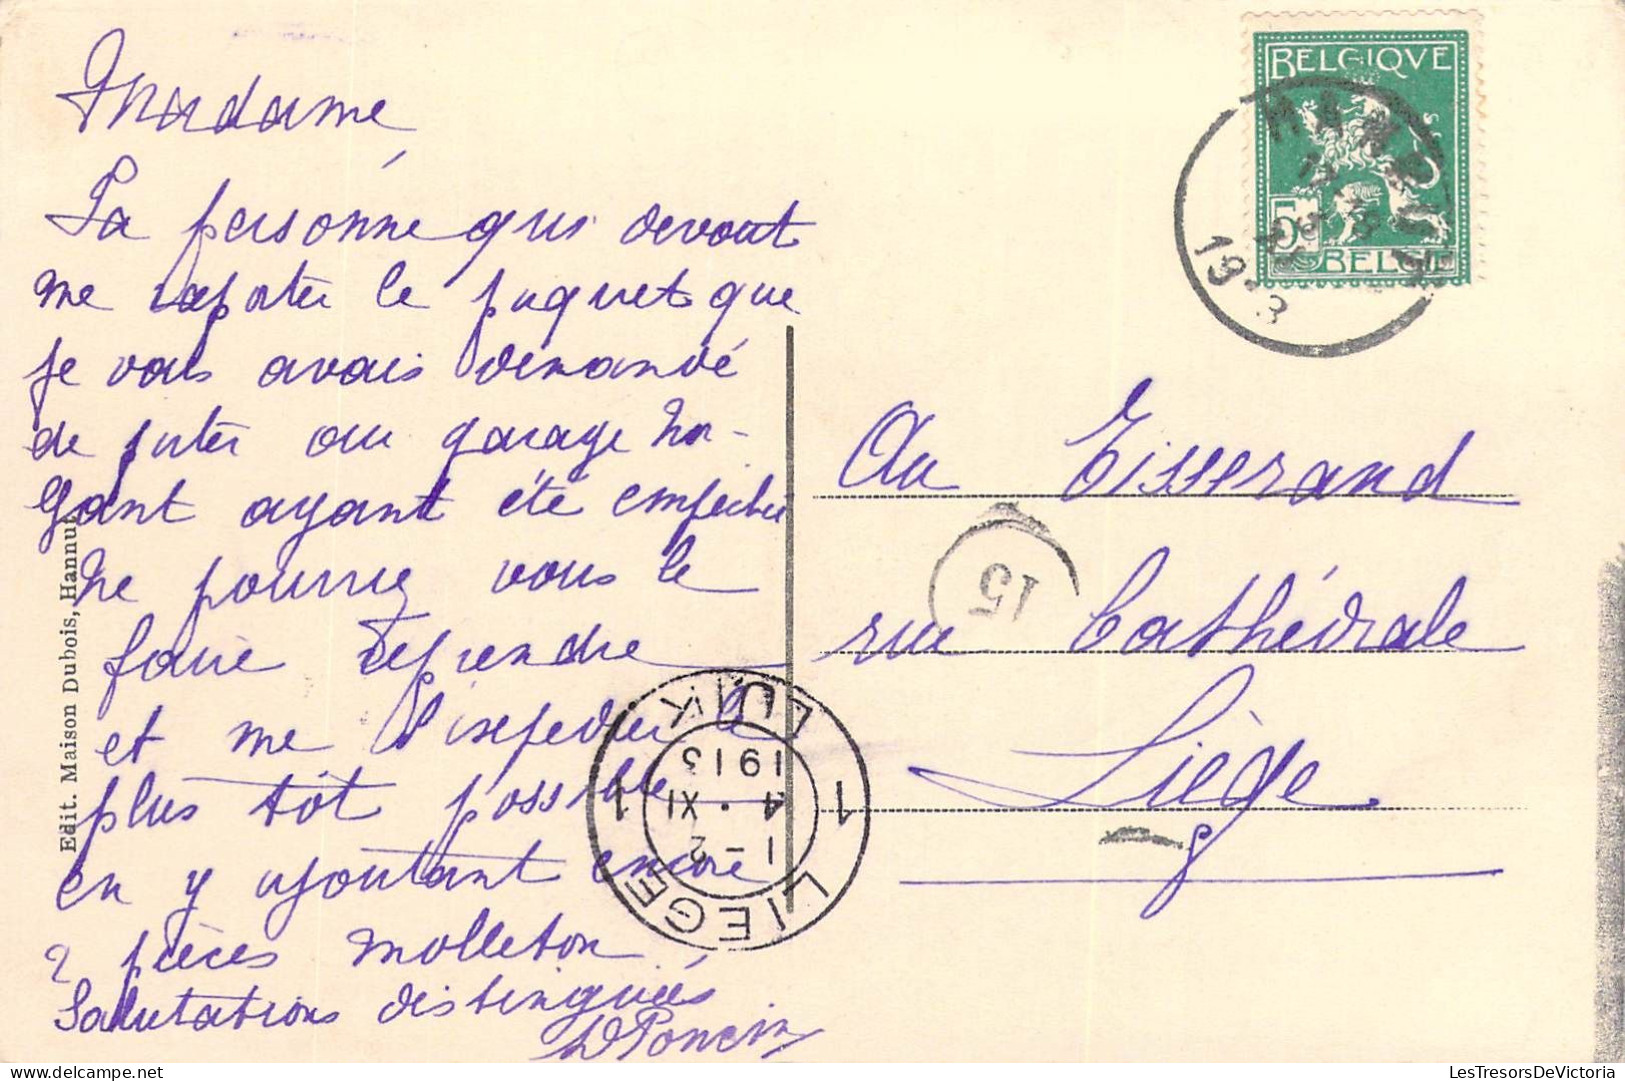 Madame
La personne qui devait
me rapporter le paquet que
je vous avais demandé
de porter au garage No-
gant ayant été empêchée
ne pourriez vous le
faire reprendre
et me l'expedier le
plus tôt possible
en y ajoutant encore
2 pièces molleton
Salutations distinguées
D Poncin
Edit. Maison Dubois, Hannut
BELGIQUE
5
BELGIE
HANNUT
1913
Au Tisserand
15
rue Cathédrale
Liège
LUIK
1913
4 · XI
1-2
1 1
LIEGE
LesTresorsDeVictoria